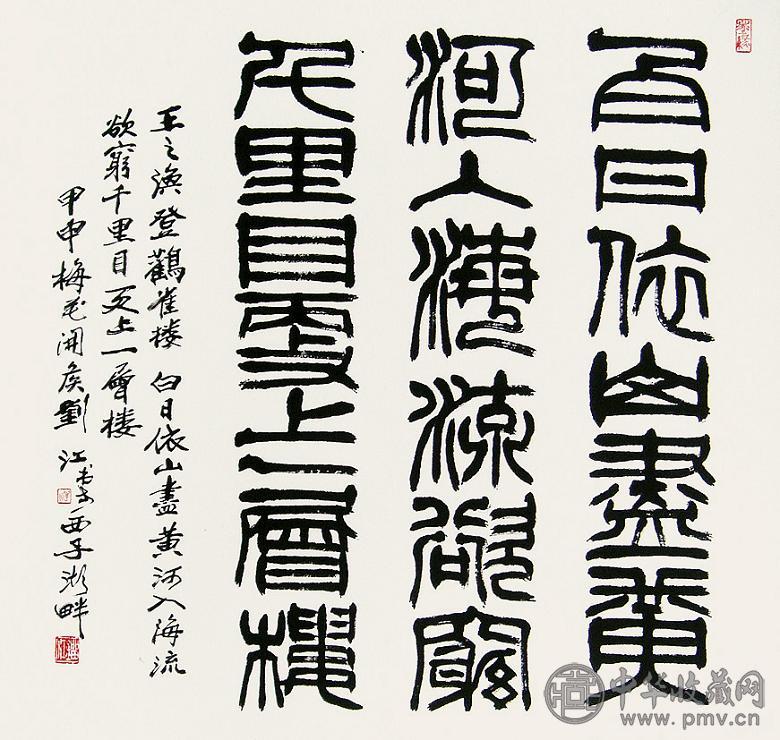 白日依山盡黄
河入海流欲窮
千里目更上一層樓
王之渙登鸛雀楼 白日依山盡黄河入海流
欲窮千里目更上一層楼
甲申梅花開候劉江書於西子湖畔
中华收藏网
www.pmv.cn